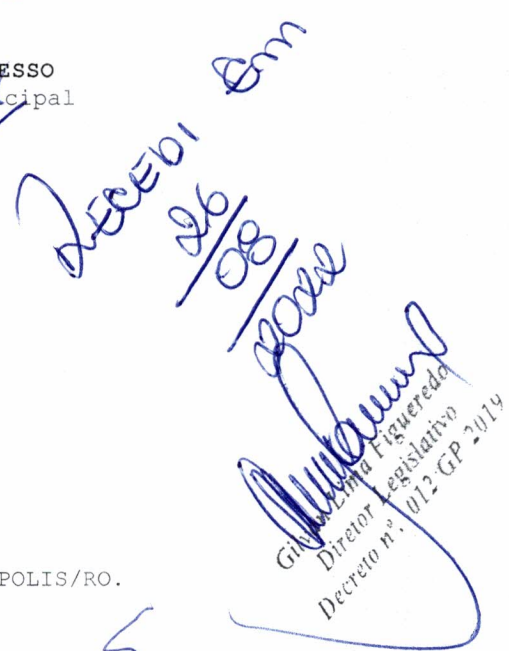 ESSO
cipal
RECEBI Em
26/08/2022
Lima Figueredo
Diretor Legislativo
Decreto nº. 012 GP 2019
POLIS/RO.